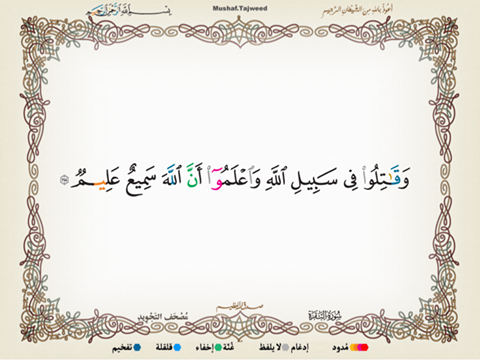 Mushaf.Tajweed
أعوذ بالله من الشيطان الرجيم
بسم الله الرحمن الرحيم
وَقَٰتِلُوا۟ فِى سَبِيلِ ٱللَّهِ وَٱعْلَمُوٓا۟ أَنَّ ٱللَّهَ سَمِيعٌ عَلِيمٌ
صدق الله العظيم
سورة البقرة
مصحف التجويد
مدود إدغام لا يلفظ غنّة إخفاء قلقلة تفخيم